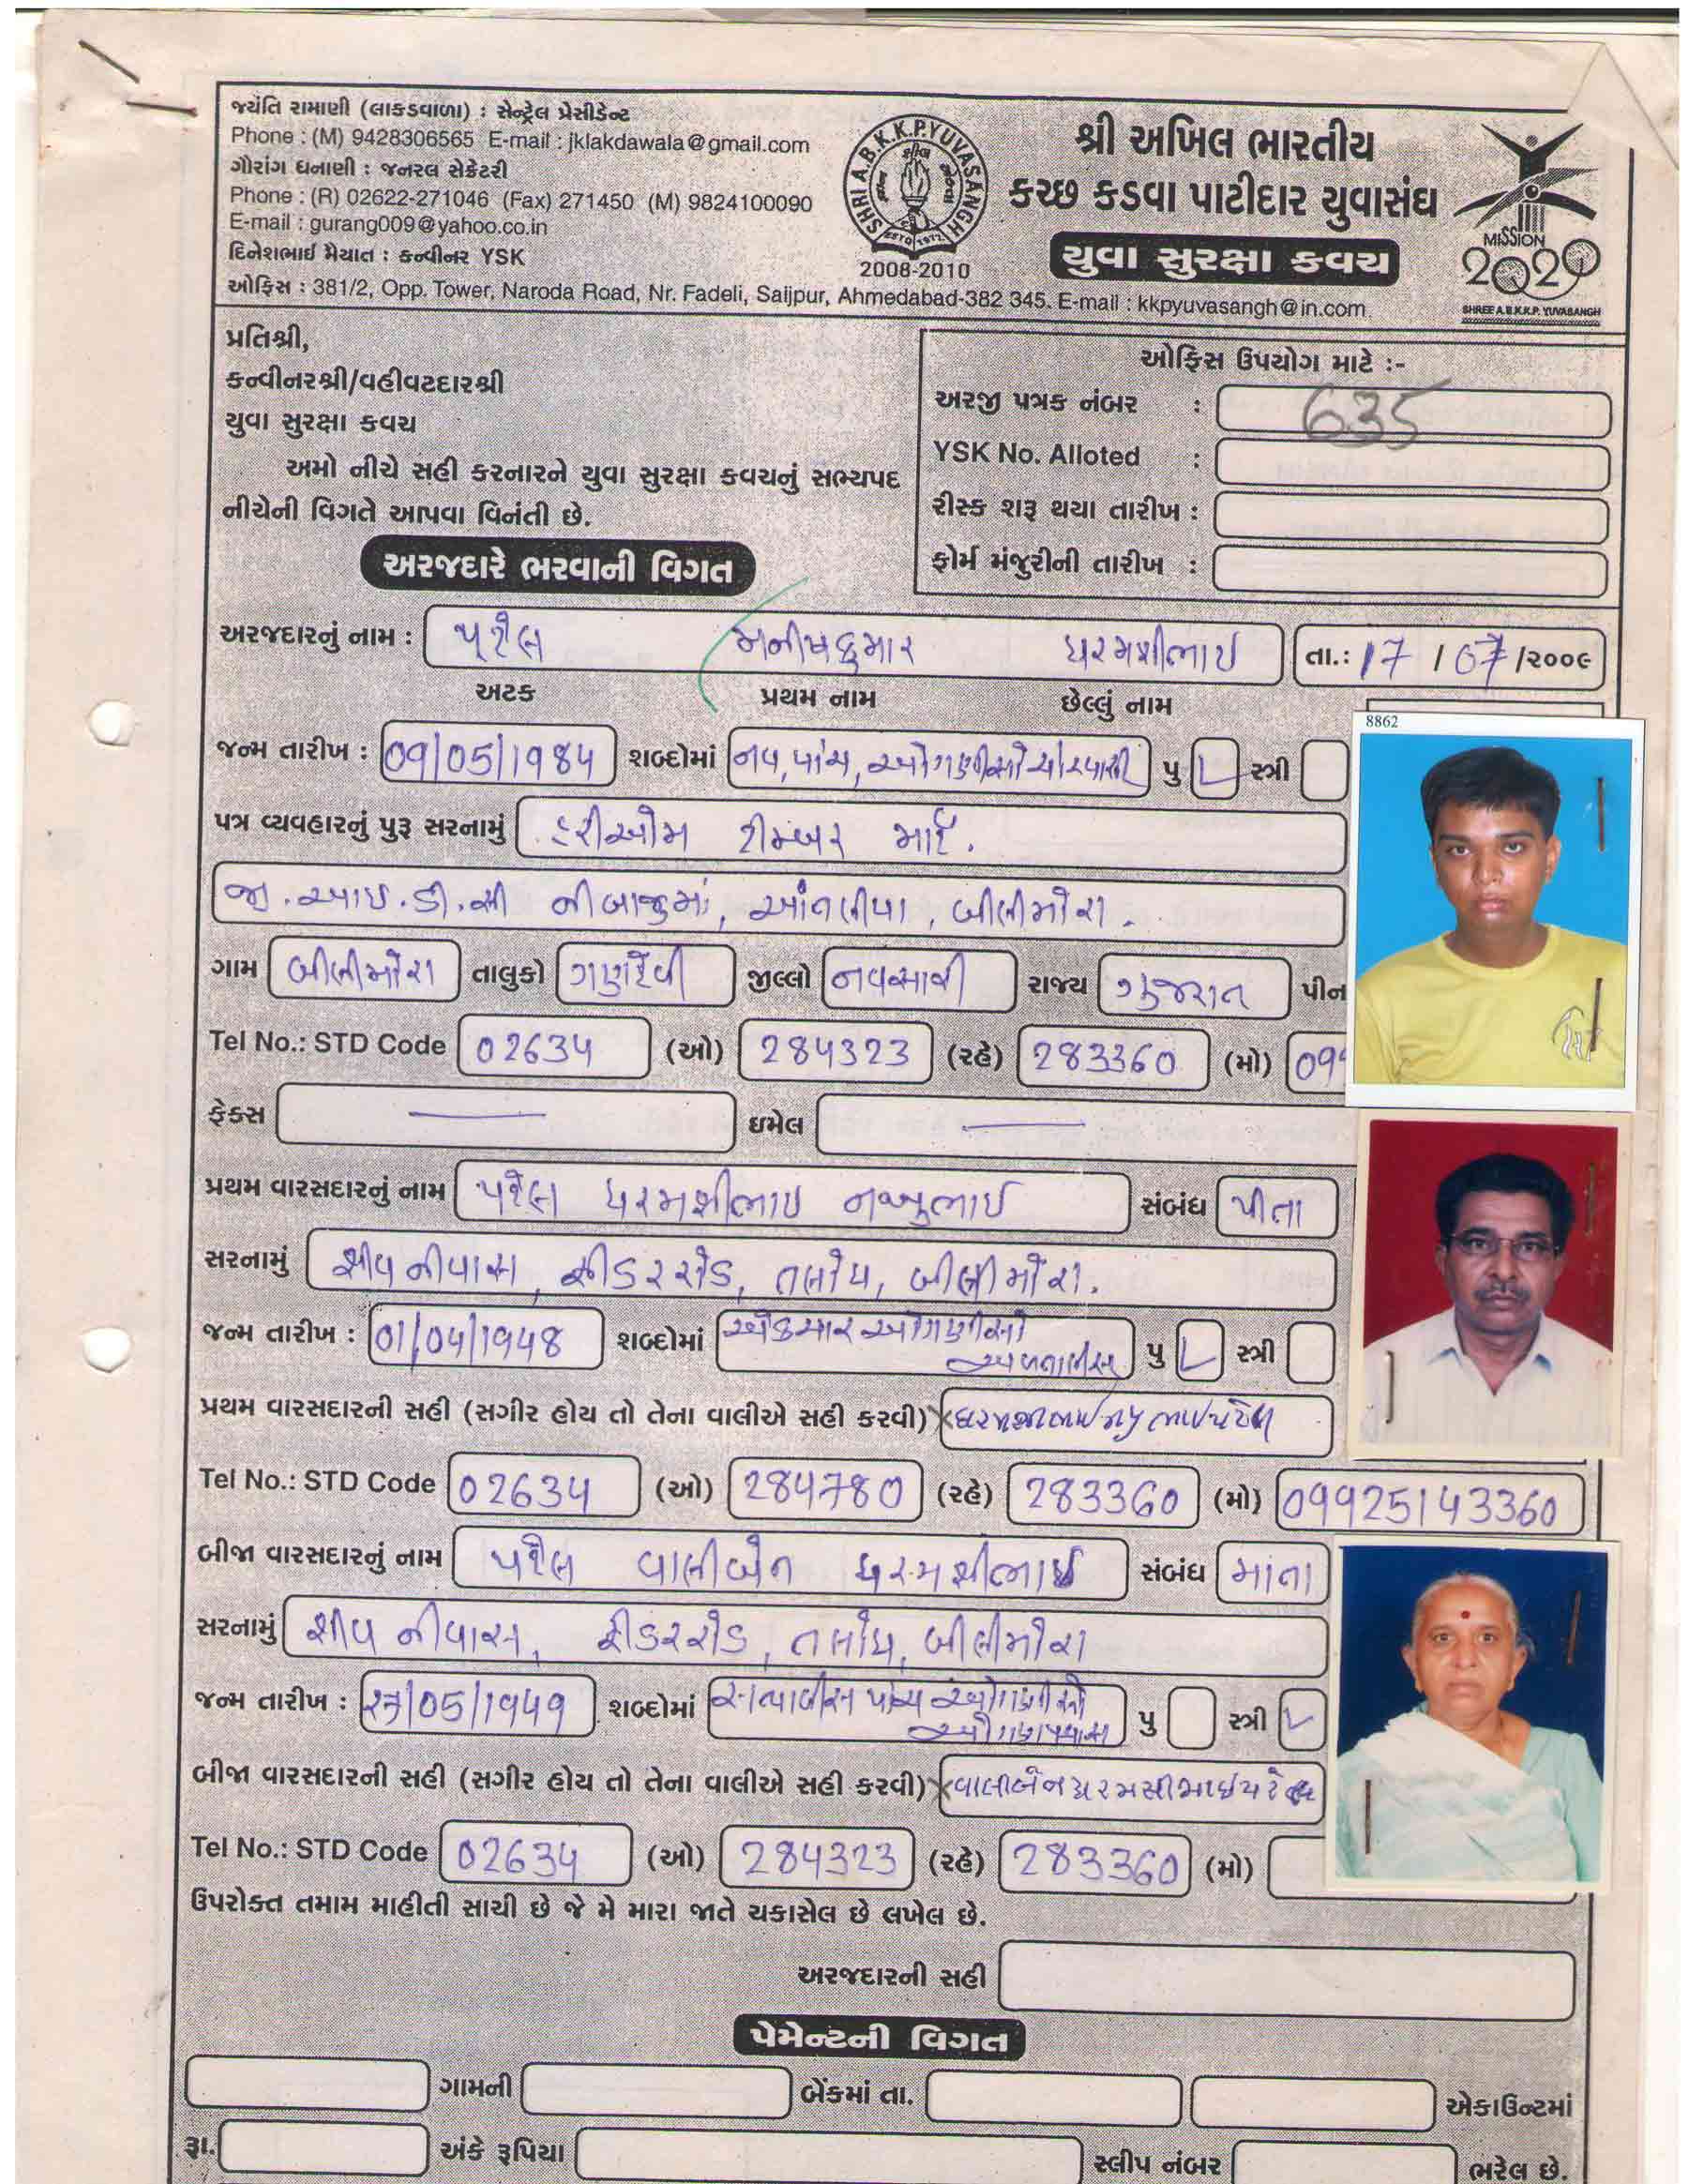 જયંતિ રામાણી (લાકડાવાળા) : સેન્ટ્રેલ પ્રેસીડેન્ટ
Phone : (M) 9428306565 E-mail : jklakdawala@gmail.com
ગૌરાંગ ધનાણી : જનરલ સેક્રેટરી
Phone : (R) 02622-271046 (Fax) 271450 (M) 9824100090
E-mail : gurang009@yahoo.co.in
દિનેશભાઈ મૈયાત : કન્વીનર YSK
ઓફિસ : 381/2, Opp. Tower, Naroda Road, Nr. Fadeli, Saijpur, Ahmedabad-382 345. E-mail : kkpyuvasangh@in.com
SHRI A.B.K.K.P. YUVASANGH
ESTD 1972
2008-2010
શ્રી અખિલ ભારતીય
કચ્છ કડવા પાટીદાર યુવાસંઘ
યુવા સુરક્ષા કવચ
MISSION
2020
SHREE A.B.K.K.P. YUVASANGH
પ્રતિશ્રી,
કન્વીનરશ્રી/વહીવટદારશ્રી
યુવા સુરક્ષા કવચ
અમો નીચે સહી કરનારને યુવા સુરક્ષા કવચનું સભ્યપદ
નીચેની વિગતે આપવા વિનંતી છે.
ઓફિસ ઉપયોગ માટે :-
અરજી પત્રક નંબર : 635
YSK No. Alloted :
રીસ્ક શરૂ થયા તારીખ :
ફોર્મ મંજુરીની તારીખ :
અરજદારે ભરવાની વિગત
અરજદારનું નામ : પટેલ મનીષકુમાર ધરમશીભાઈ તા.: 17 / 07 /૨૦૦૯
અટક પ્રથમ નામ છેલ્લું નામ
8862
જન્મ તારીખ : 09/05/1984 શબ્દોમાં નવ, પાંચ, ઓગણીસો ચોરયાસી પુ સ્ત્રી
પત્ર વ્યવહારનું પુરૂ સરનામું હરીઓમ ટીમ્બર માર્ટ.
જી.આઈ.ડી.સી ની બાજુમાં, આંતલીયા, બીલીમોરા.
ગામ બીલીમોરા તાલુકો ગણદેવી જીલ્લો નવસારી રાજ્ય ગુજરાત પીન
Tel No.: STD Code 02634 (ઓ) 284323 (રહે) 283360 (મો) 099
ફેક્સ ઇમેલ
પ્રથમ વારસદારનું નામ પટેલ ધરમશીભાઈ નજુભાઈ સંબંધ પીતા
સરનામું શીવ નીવાસ, ફીડર રોડ, તલોધ, બીલીમોરા.
જન્મ તારીખ : 01/04/1948 શબ્દોમાં એક ચાર ઓગણીસો
અળતાલીસ પુ સ્ત્રી
પ્રથમ વારસદારની સહી (સગીર હોય તો તેના વાલીએ સહી કરવી)
Tel No.: STD Code 02634 (ઓ) 284780 (રહે) 283360 (મો) 09925143360
બીજા વારસદારનું નામ પટેલ વાલીબેન ધરમશીભાઈ સંબંધ માતા
સરનામું શીવ નીવાસ, ફીડર રોડ, તલોધ, બીલીમોરા
જન્મ તારીખ : 27/05/1949 શબ્દોમાં સત્યાવીસ પાંચ ઓગણીસો
ઓગણપચાસ પુ સ્ત્રી
બીજા વારસદારની સહી (સગીર હોય તો તેના વાલીએ સહી કરવી) વાલીબેન ધરમસીભાઇ પટેલ
Tel No.: STD Code 02634 (ઓ) 284323 (રહે) 283360 (મો)
ઉપરોક્ત તમામ માહીતી સાચી છે જે મે મારા જાતે ચકાસેલ છે લખેલ છે.
અરજદારની સહી
પેમેન્ટની વિગત
ગામની બેંકમાં તા. એકાઉન્ટમાં
રૂા. અંકે રૂપિયા સ્લીપ નંબર ભરેલ છે.